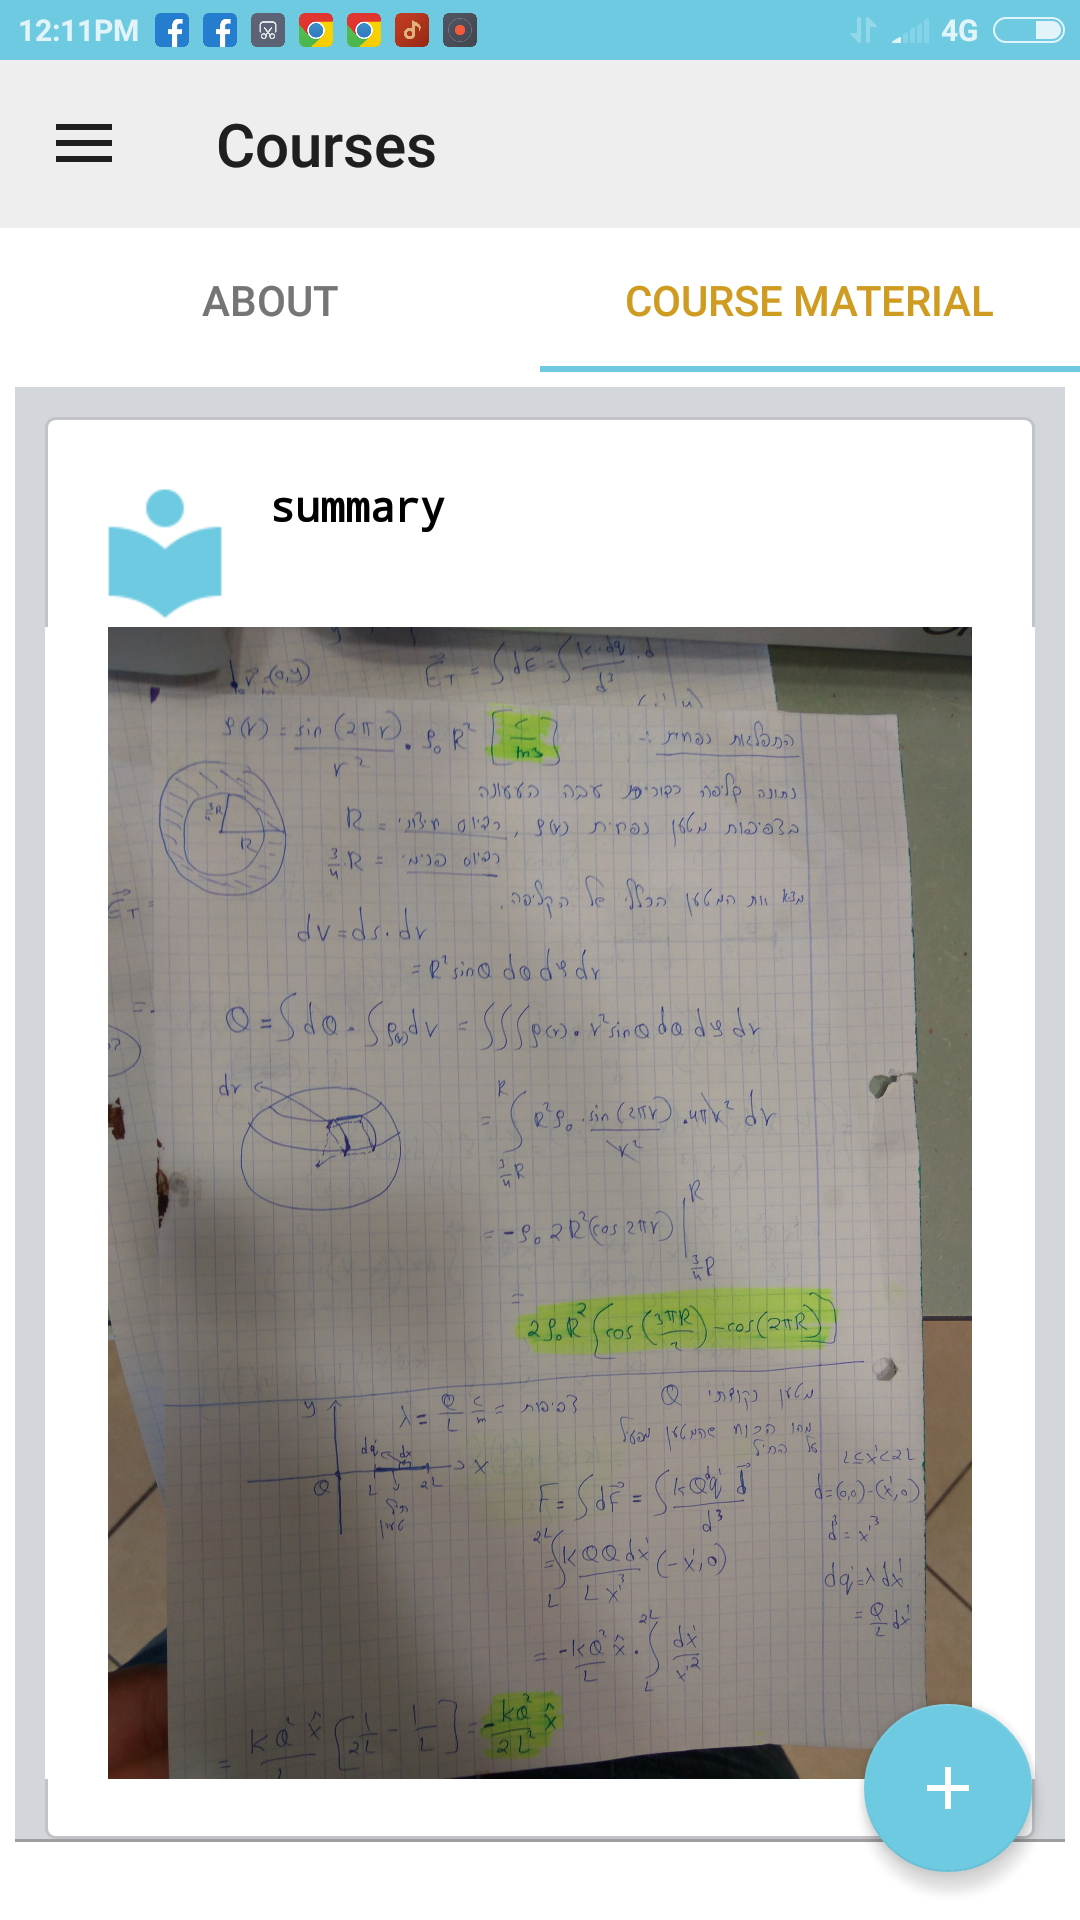 12:11PM
4G
Courses
ABOUT
COURSE MATERIAL
summary
E⃗_T = ∫dE⃗ = ∫ k·dq/d³ · d
(0,y)
ρ(r) = sin(2πr)/r² · ρ₀R² [c/m³]
התפלגות נפחית :-
נתונה קליפה כדורית עבה הטעונה
בצפיפות מטען נפחית ρ(r), רדיוס חיצוני = R
רדיוס פנימי = 3/4·R
מצא את המטען הכללי של הקליפה.
R
dv = ds·dr
= R² sinθ dθ dφ dr
Q = ∫dQ · ∫ρ(r)dv = ∫∫∫ρ(r)·r² sinθ dθ dφ dr
dr
= ∫_{3/4 R}^{R} R²ρ₀ · sin(2πr)/r² · 4πr² dr
= -ρ₀ 2R²(cos 2πr) |_{3/4 R}^{R}
= 2ρ₀R² [cos(3πR/2) - cos(2πR)]
מטען נקודתי Q
λ = Q/L c/m = צפיפות
מהו הכוח שהמטען מפעיל
על התיל
y
dq' dx
x
Q L 2L
תיל
טעון
L ≤ x' < 2L
F = ∫dF⃗ = ∫ kQdq' d⃗/d³
d = (0,0) - (x',0)
d³ = x'³
= ∫_L^{2L} kQQdx'/Lx'³ (-x',0)
dq' = λdx'
= Q/L dx'
= -kQ²/L x̂ · ∫_L^{2L} dx'/x'²
= kQ² x̂/L [1/2L - 1/L] = -kQ²/2L² x̂